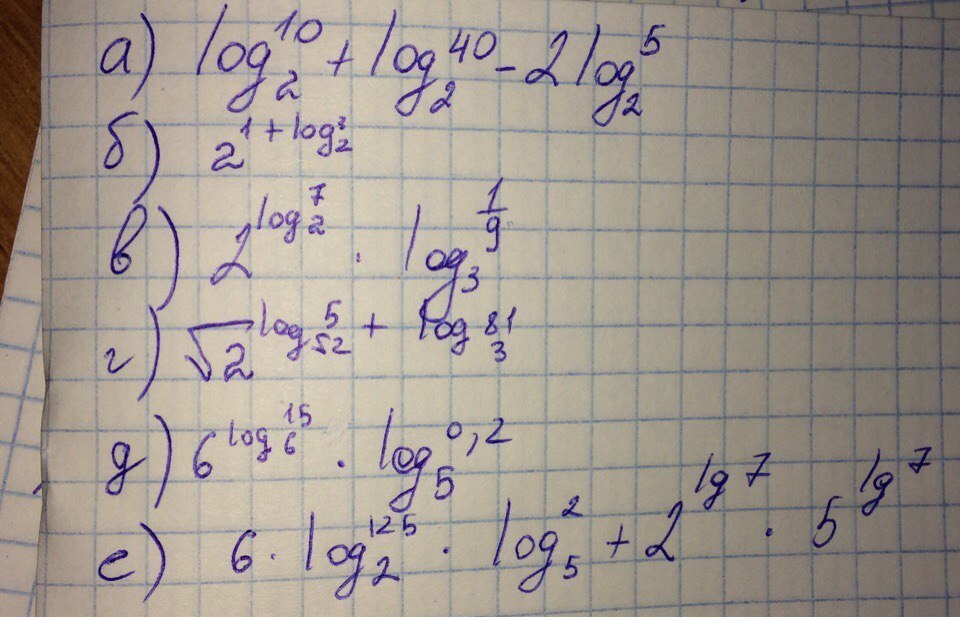 а) log₂¹⁰ + log₂⁴⁰ - 2 log₂⁵
б) 2^(1 + log₂³)
в) 2^(log₂⁷) · log₃^(1/9)
г) √2^(log_√2 5) + log₃⁸¹
д) 6^(log₆¹⁵) · log₅^0,2
е) 6 · log₂¹²⁵ · log₅² + 2^(lg 7) · 5^(lg 7)